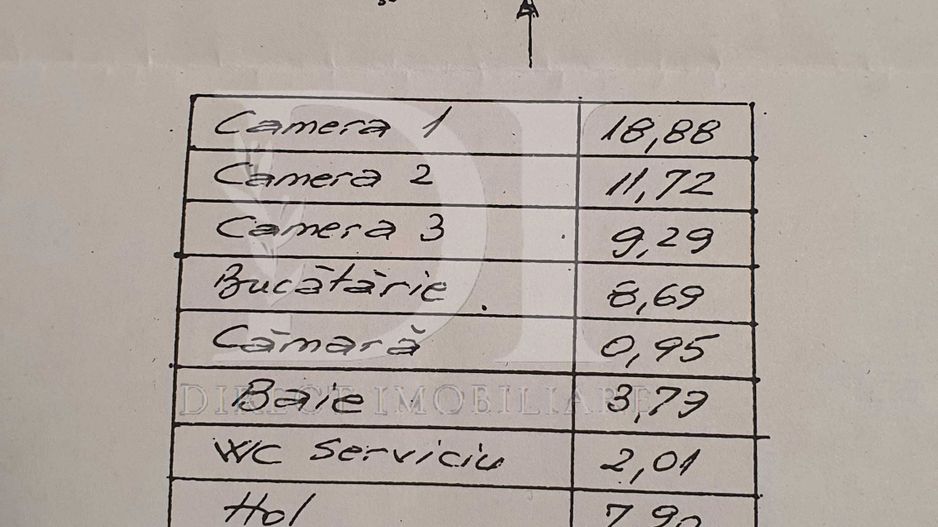 Camera 1 18,88
Camera 2 11,72
Camera 3 9,29
Bucătărie 8,69
Cămară 0,95
Baie 3,79
WC Serviciu 2,01
Hol 7,90
DIRECT IMOBILIARE